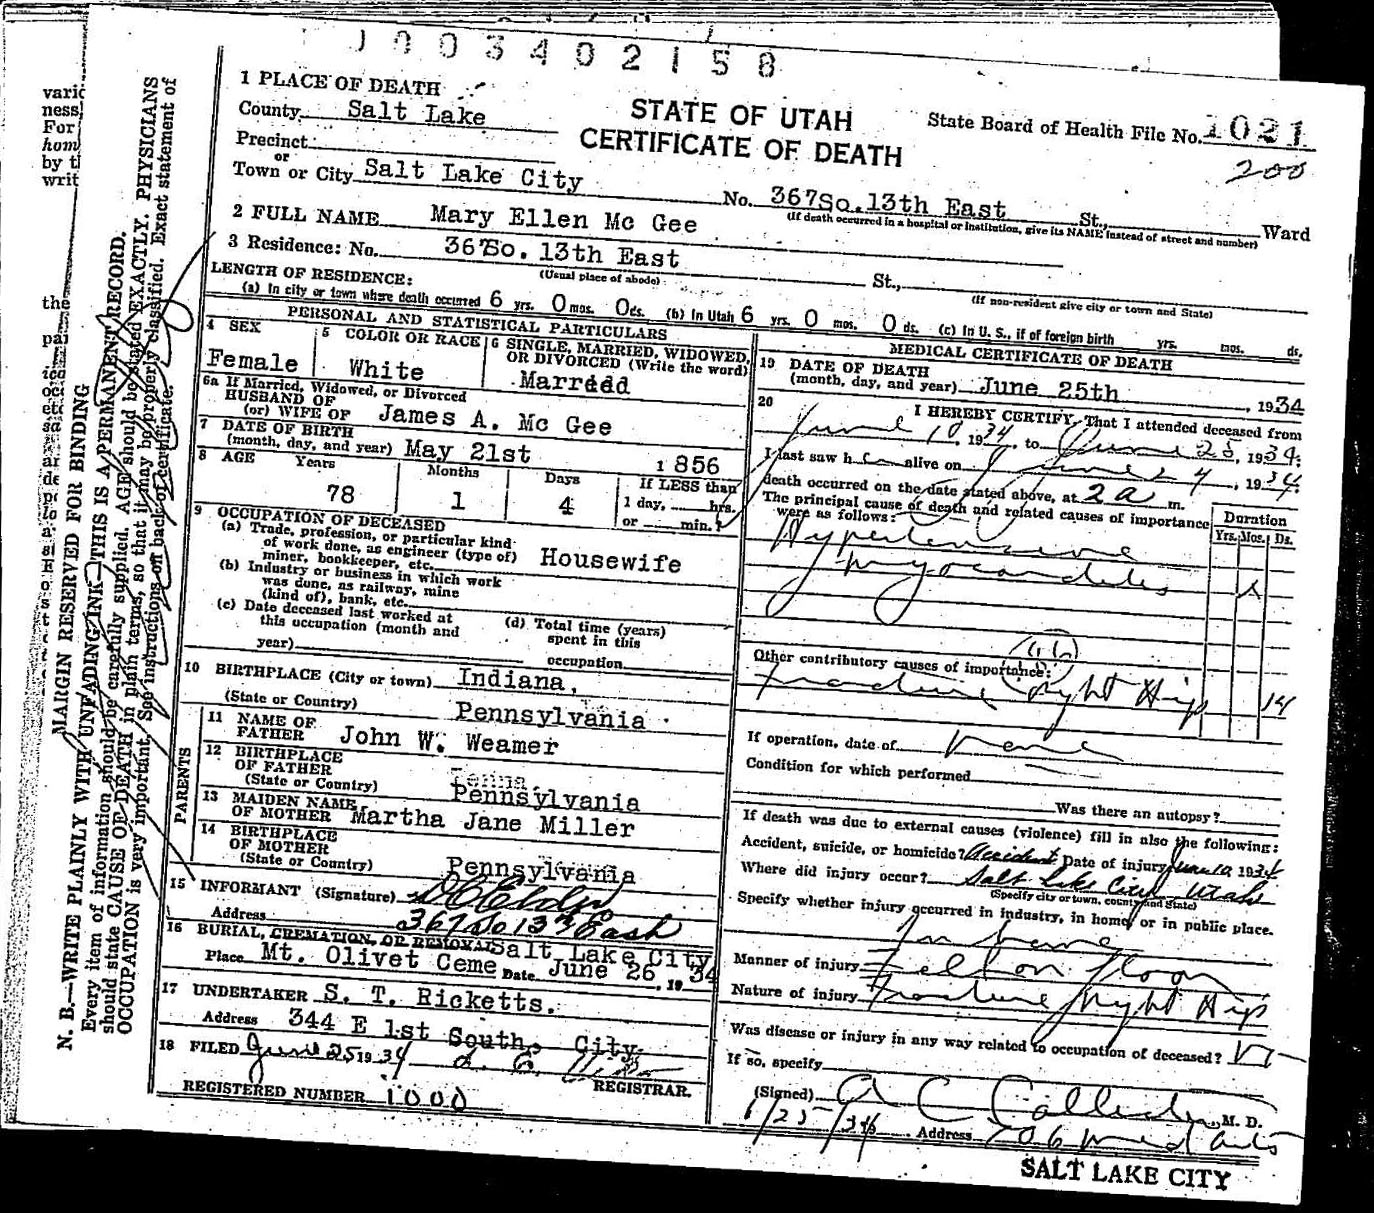 1003402158
1 PLACE OF DEATH
County Salt Lake
STATE OF UTAH
CERTIFICATE OF DEATH
State Board of Health File No. 1021
200
Precinct
or
Town or City Salt Lake City
No. 367So.13th East St., Ward
(If death occurred in a hospital or institution, give its NAME instead of street and number)
2 FULL NAME Mary Ellen Mc Gee
3 Residence: No. 367So. 13th East St.,
(Usual place of abode)
(If non-resident give city or town and State)
LENGTH OF RESIDENCE:
(a) In city or town where death occurred 6 yrs. 0 mos. 0 ds. (b) In Utah 6 yrs. 0 mos. 0 ds. (c) In U. S., if of foreign birth yrs. mos. ds.
PERSONAL AND STATISTICAL PARTICULARS
4 SEX
Female
5 COLOR OR RACE
White
6 SINGLE, MARRIED, WIDOWED,
OR DIVORCED (Write the word)
Married
6a If Married, Widowed, or Divorced
HUSBAND OF
(or) WIFE OF James A. Mc Gee
7 DATE OF BIRTH
(month, day, and year) May 21st 1856
8 AGE
Years
78
Months
1
Days
4
If LESS than
1 day, hrs.
or min.
9 OCCUPATION OF DECEASED
(a) Trade, profession, or particular kind
of work done, as engineer (type of)
miner, bookkeeper, etc. Housewife
(b) Industry or business in which work
was done, as railway, mine
(kind of), bank, etc.
(c) Date deceased last worked at
this occupation (month and
year)
(d) Total time (years)
spent in this
occupation
10 BIRTHPLACE (City or town) Indiana,
(State or Country) Pennsylvania
PARENTS
11 NAME OF
FATHER John W. Weamer
12 BIRTHPLACE
OF FATHER
(State or Country) Pennsylvania
13 MAIDEN NAME
OF MOTHER Martha Jane Miller
14 BIRTHPLACE
OF MOTHER
(State or Country) Pennsylvania
15 INFORMANT (Signature)
Address 367 So 13th East
16 BURIAL, CREMATION, OR REMOVAL Salt Lake City
Place Mt. Olivet Ceme Date June 26, 1934
17 UNDERTAKER S. T. Ricketts.
Address 344 E 1st South, City
18 FILED June 25 1934
REGISTRAR.
REGISTERED NUMBER 1000
MEDICAL CERTIFICATE OF DEATH
19 DATE OF DEATH
(month, day, and year) June 25th, 1934
20 I HEREBY CERTIFY, That I attended deceased from
June 10, 1934, to June 25, 1934.
I last saw her alive on June 24, 1934.
death occurred on the date stated above, at 2 a m.
The principal cause of death and related causes of importance
were as follows:
Duration
Yrs. Mos. Ds.
Hypertensive
myocarditis
Other contributory causes of importance:
Fracture Right Hip 14
If operation, date of none
Condition for which performed
Was there an autopsy?
If death was due to external causes (violence) fill in also the following:
Accident, suicide, or homicide? Accident Date of injury June 10 1934
Where did injury occur? Salt Lake City Utah
(Specify city or town, county and State)
Specify whether injury occurred in industry, in home, or in public place.
In home
Manner of injury Fell on floor
Nature of injury Fracture Right Hip
Was disease or injury in any way related to occupation of deceased?
If so, specify
(Signed) A C Callister, M. D.
6/25/34 Address 706 Med Arts
SALT LAKE CITY
MARGIN RESERVED FOR BINDING
N. B.—WRITE PLAINLY WITH UNFADING INK—THIS IS A PERMANENT RECORD.
Every item of information should be carefully supplied. AGE should be stated EXACTLY. PHYSICIANS
should state CAUSE OF DEATH in plain terms, so that it may be properly classified. Exact statement of
OCCUPATION is very important. See instructions on back of certificate.